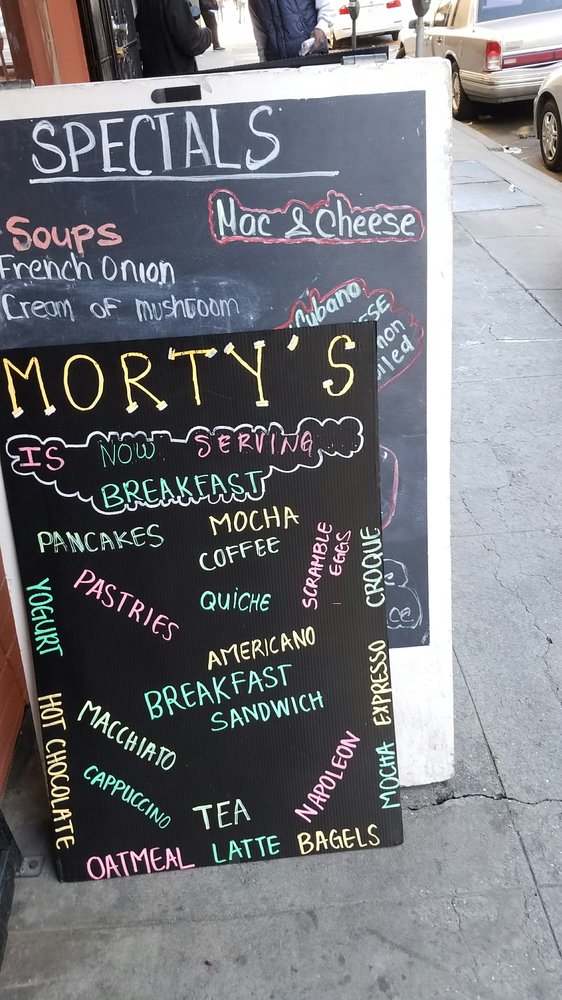 SPECIALS
Mac & Cheese
Soups
French Onion
Cream of mushroom
Cubano
MORTY'S
IS NOW SERVING
BREAKFAST
PANCAKES
MOCHA
COFFEE
SCRAMBLE
EGGS
CROQUE
YOGURT
PASTRIES
QUICHE
AMERICANO
BREAKFAST
SANDWICH
EXPRESSO
HOT CHOCOLATE
MACCHIATO
CAPPUCCINO
TEA
NAPOLEON
MOCHA
OATMEAL
LATTE
BAGELS